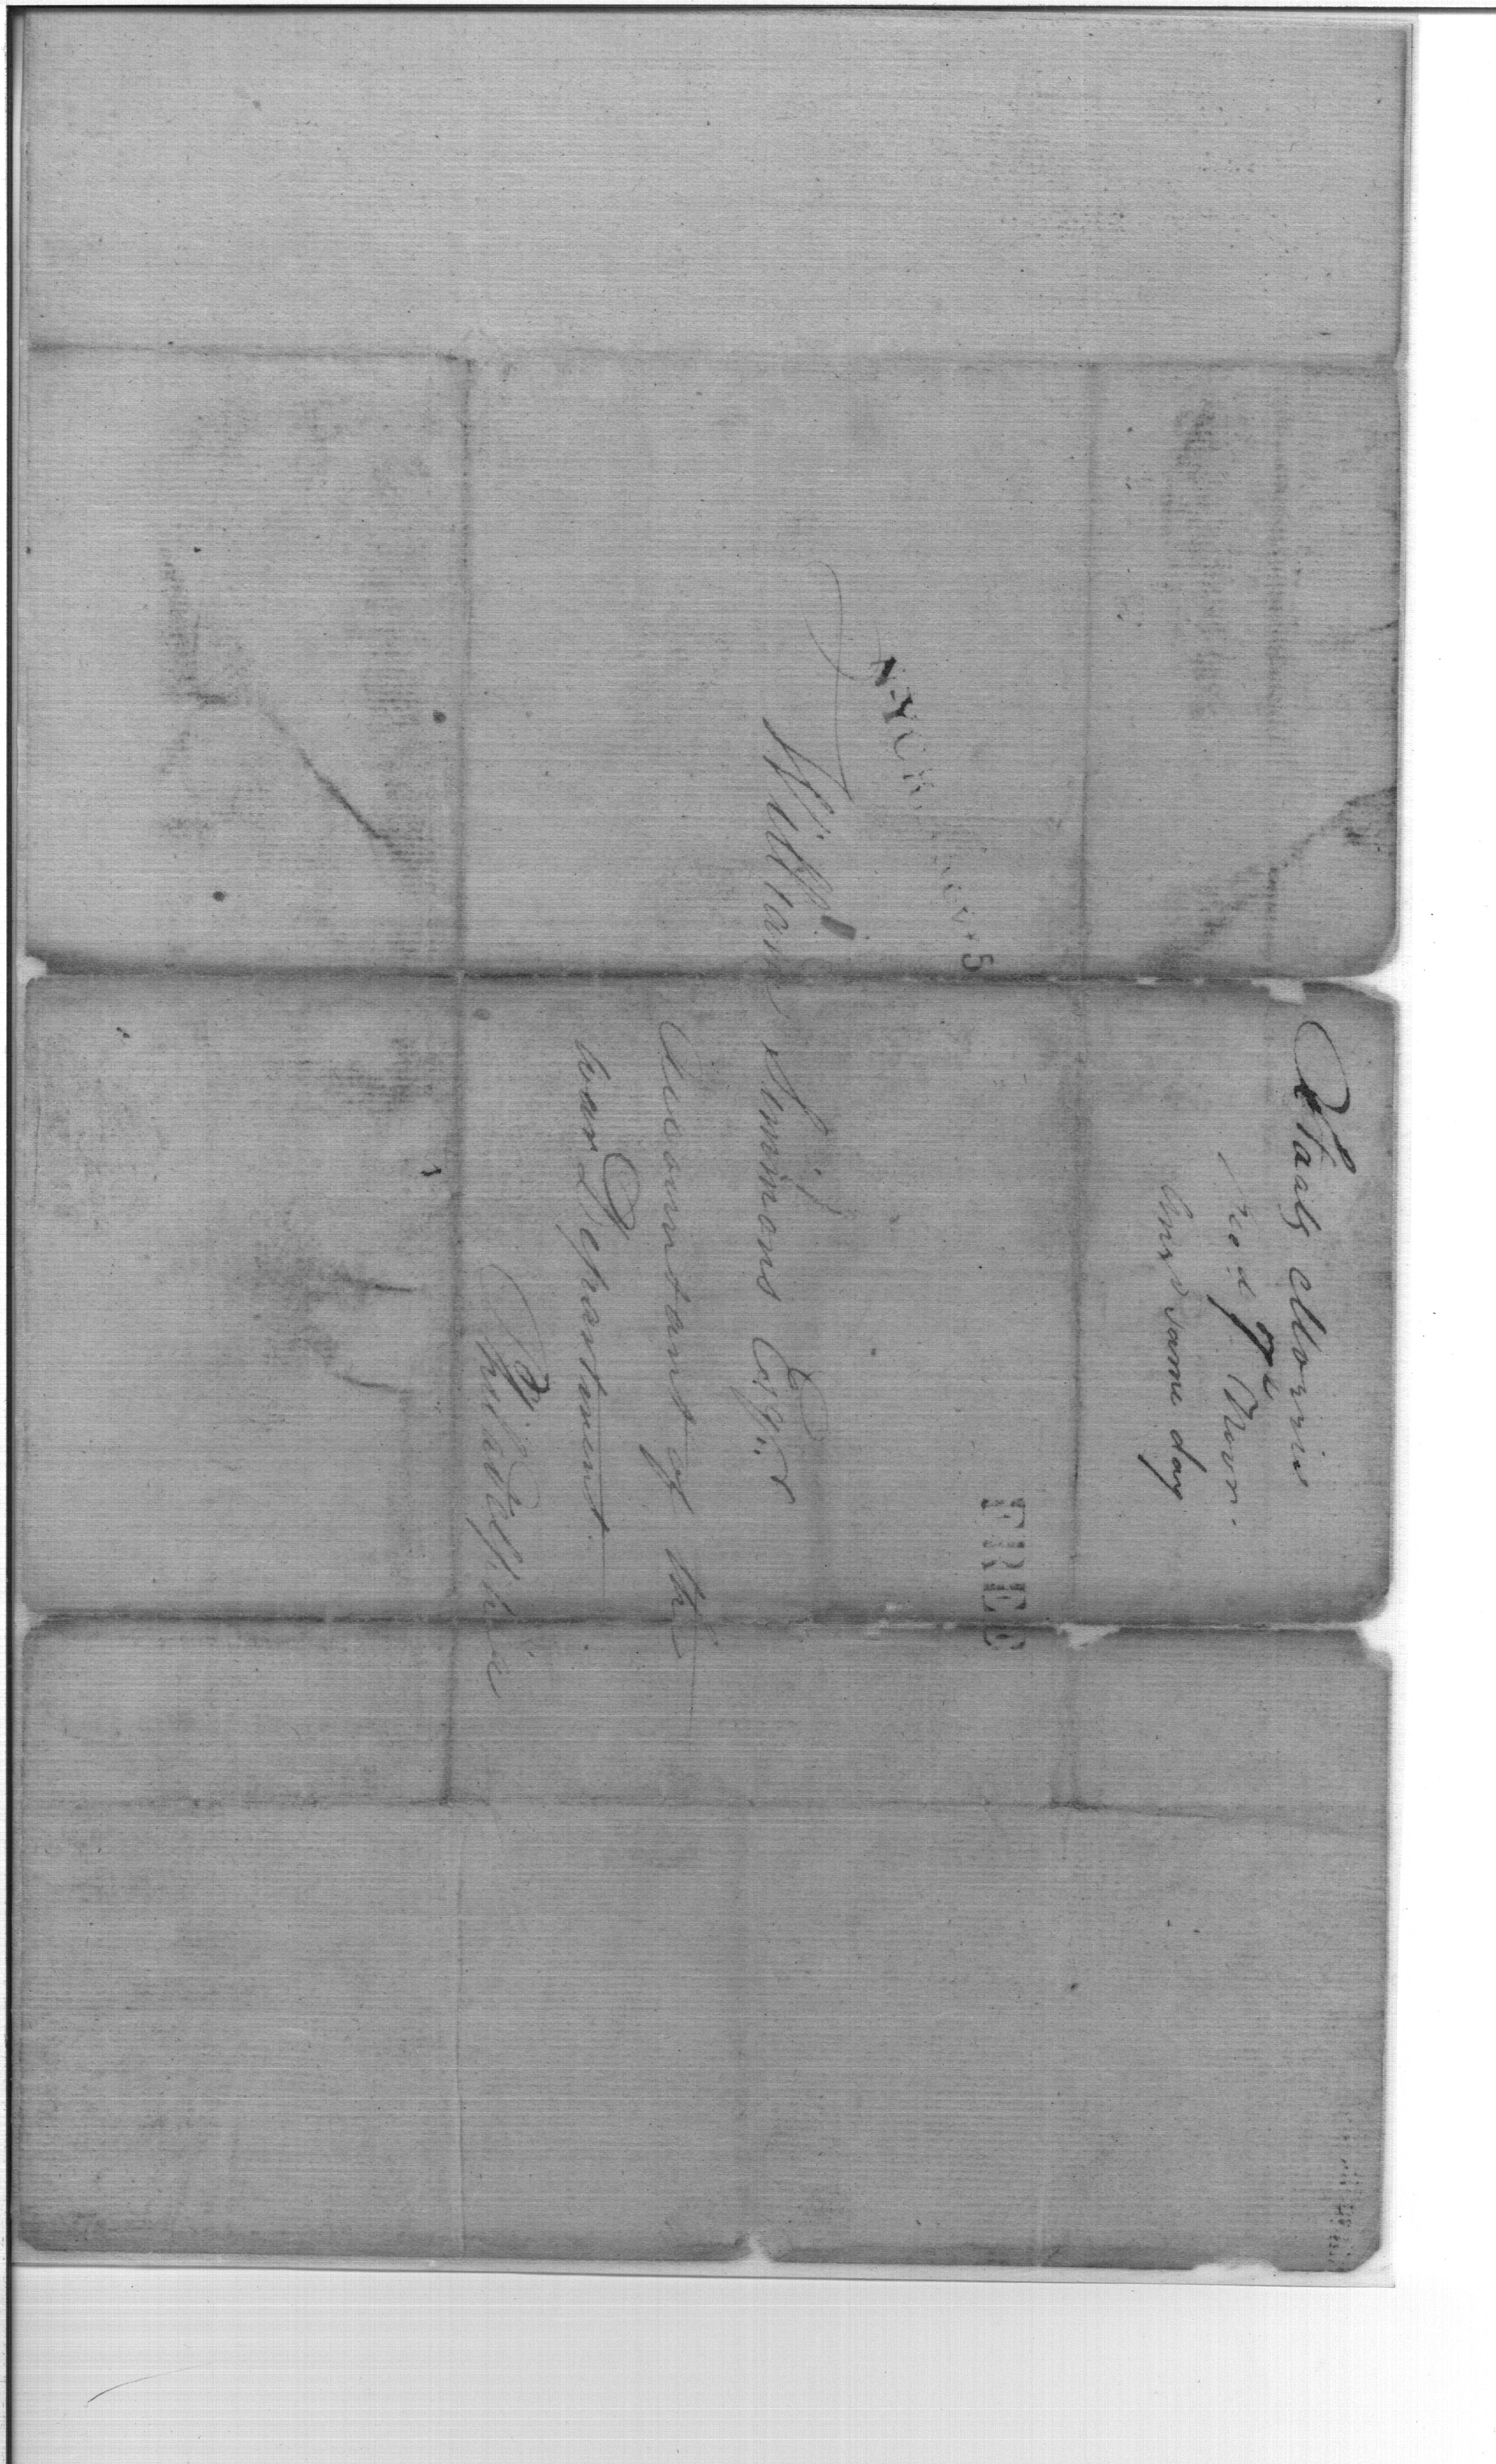 Staats Morris
Rec.d 7th Nov.r
Ans.d same day
FREE
5
William Simmons Esq.r
Accountant of the
War Department.
Philadelphia